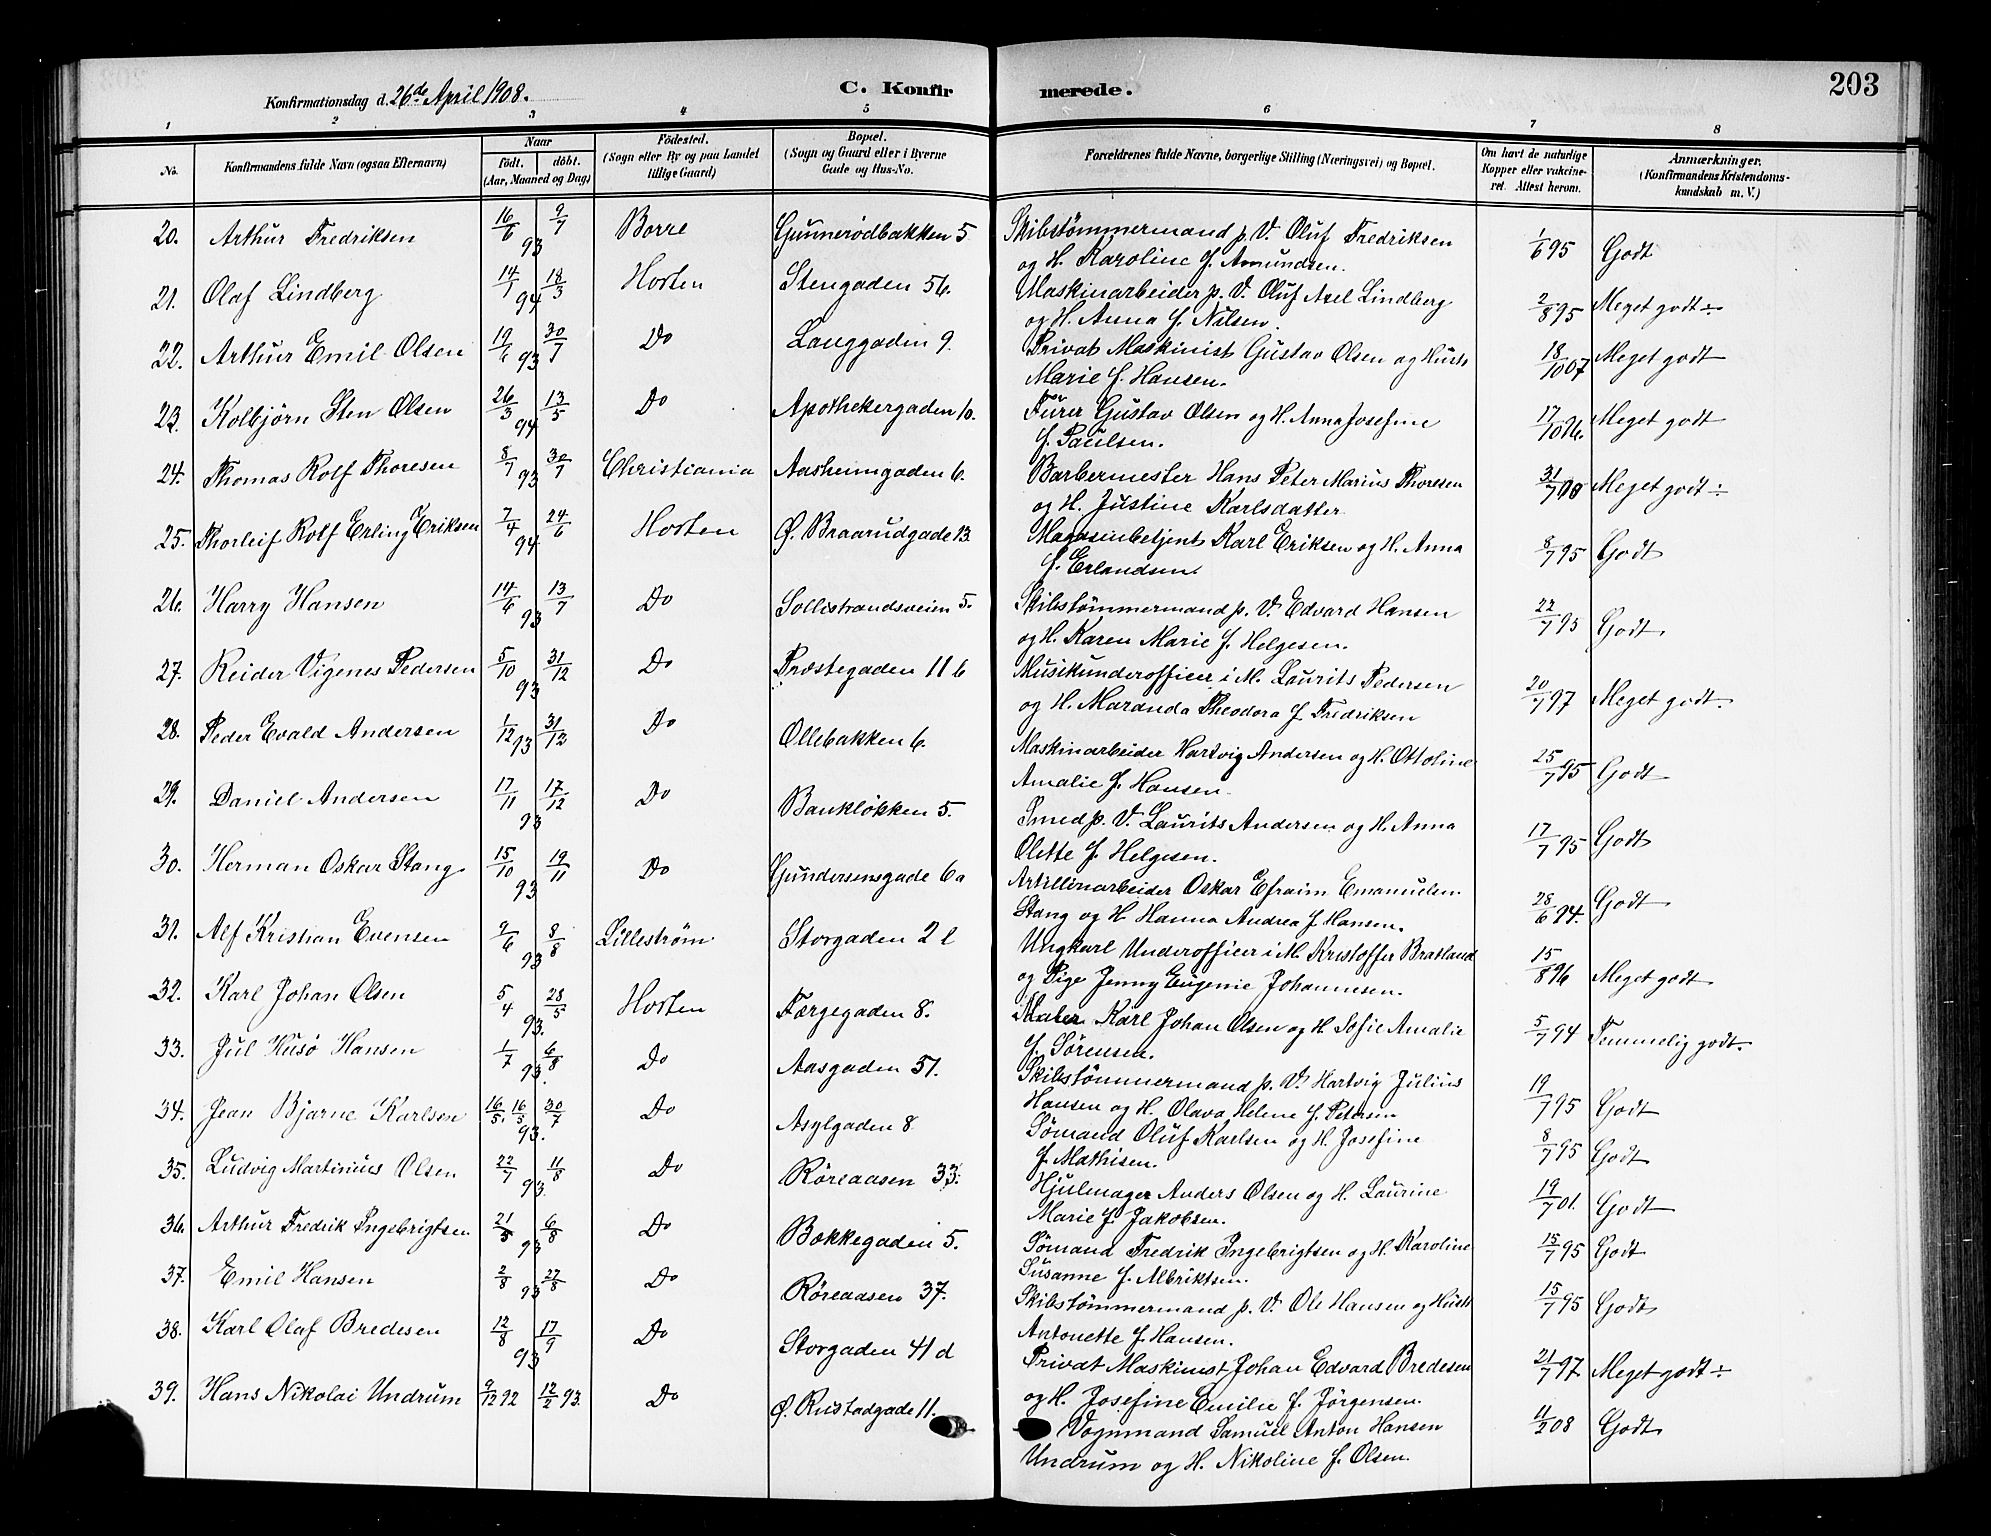 203
Konfirmationsdag d. 26de April 1908.
C. Konfir
merede.
1 2 3 4 5 6 7 8
No.
Konfirmandens fulde Navn (ogsaa Efternavn)
Naar
födt. döbt.
(Aar, Maaned og Dag)
Födested.
(Sogn eller By og paa Landet
tillige Gaard)
Bopæl.
(Sogn og Gaard eller i Byerne
Gade og Hus-No.
Forældrenes fulde Navne, borgerlige Stilling (Næringsvei) og Bopæl.
Om havt de naturlige
Kopper eller vakcine-
ret. Attest herom.
Anmærkninger.
(Konfirmandens Kristendoms-
kundskab m. V.)
20. Arthur Fredriksen 16/6 93 9/7 Borre Gunnerödbakken 5 Skibstömmermand p. V. Oluf Fredriksen 1/6 95 Godt
og H. Karoline f. Amundsen.
21. Olaf Lindberg 14/1 94 18/3 Horten Stengaden 56. Maskinarbeider p. V. Oluf Axel Lindberg 2/8 95 Meget godt ÷
og H. Anna f. Nilsen.
22. Arthur Emil Olsen 19/6 93 30/7 Do Langgaden 9. Privat Maskinist Gustav Olsen og Hustr 18/10 07 Meget godt
Marie f. Hansen.
23. Kolbjörn Sten Olsen 26/3 94 13/5 Do Apothekergaden 10. Fürer Gustav Olsen og H. Anna Josefine 17/10 06. Meget godt
f. Paulsen.
24. Thomas Rolf Thoresen 8/7 93 30/7 Christiania Aasheimgaden 6. Barbermester Hans Peter Marius Thoresen 31/7 00 Meget godt ÷
og H. Justine Karlsdatter
25. Thorleif Rolf Erling Eriksen 7/4 94 24/6 Horten Ø. Braarudgade 13 Magasinbetjent Karl Eriksen og H. Anna 8/7 95 Godt
f. Erlandsen.
26. Harry Hansen 14/6 93 13/7 Do Sollistrandsveien 5. Skibstömmermand p. V. Edvard Hansen 22/7 95 Godt.
og H. Karen Marie f. Helgesen.
27. Reider Vigenes Pedersen 5/10 93 31/12 Do Præstegaden 11 b Musikunderofficer i M. Laurits Pedersen 20/7 97 Meget godt.
og H. Maranda Theodora f. Fredriksen
28. Peder Evald Andersen 1/12 93 31/12 Do Ollebakken 6. Maskinarbeider Hartvig Andersen og H. Ottoline 25/7 95 Godt
Amalie f. Hansen.
29. Daniel Andersen 17/11 93 17/12 Do Banklökken 5. Smed p. V. Laurits Andersen og H. Anna 17/7 95 Godt
Olette f. Helgesen.
30. Herman Oskar Stang 15/10 93 19/11 Do Gundersensgade 6a Artilliriarbeider Oskar Efraim Emanuelen 28/6 94. Godt
Stang og H. Hanna Andrea f. Hansen.
31. Alf Kristian Evensen 9/6 93 8/8 Lilleström Storgaden 2 l Ungkarl Underofficer i M. Kristoffer Bratland 15/8 96 Meget godt
og Pige Jenny Eugenie Johannesen.
32. Karl Johan Olsen 5/4 93. 28/5 Horten Færgegaden 8. Maler Karl Johan Olsen og H. Sofie Amalie 5/7 94 Temmelig godt.
f. Sörensen.
33. Jul Husö Hansen 1/7 93. 6/8 Do Aasgaden 51. Skibstömmermand p. V. Hartvig Julius 19/7 95 Godt
Hansen og H. Olava Helene f. Petersen
34. Jean Bjarne Karlsen 16/5. 16/5 93. 30/7 Do Asylgaden 8 Sömand Oluf Karlsen og H. Josefine 8/7 95 Godt
f. Mathisen.
35. Ludvig Martinius Olsen 22/7 93. 11/8 Do Röreaasen 33. Hjulmager Anders Olsen og H. Laurine 19/7 01. Godt
Marie f. Jakobsen.
36. Arthur Fredrik Ingebrigtsen 21/5 93 6/8 Do Bækkegaden 5. Sömand Fredrik Ingebrigtsen og H. Karoline 15/7 95 Godt
Susanne f. Albriktsen.
37. Emil Hansen 2/8 93 27/8 Do Röreaasen 37. Skibstömmermand p. V. Ole Hansen og Hustr 15/7 95 Godt
Antonette f. Hansen.
38. Karl Olaf Bredesen 12/8 93 17/9 Do Storgaden 41 d Privat Maskinist Johan Edvard Bredesen 21/7 97 Meget godt ÷
og H. Josefine Emilie f. Jörgensen.
39. Hans Nikolai Undrum 9/12 92 12/2 93. Do Ø. Rustadgade 11. Vognmand Samuel Anton Hansen 11/2 08 Godt.
Undrum og H. Nikoline f. Olsen.